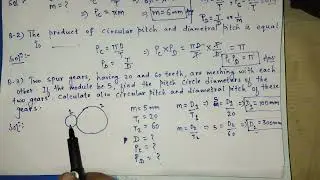 Pc = πm ⇒ m = 6mm
Q-2) The product of circular pitch and diametral pitch is equal
to
Solⁿ:- Pc = πD/T Pc × PD = πD/T × T/D = π
PD = T/D
Q-3) Two spur gears, having 20 and 60 teeth, are meshing with each
other. If the module be 5, find the pitch circle diameters of the
two gears. Calculate also circular pitch and diametral pitch of these
gears.
Solⁿ:-
m = 5mm
T1 = 20
T2 = 60
D = ?
Pc = ?
PD = ?
m = D1/T1 ⇒ 5 = D1/20 ⇒ D1 = 100mm
m = D2/T2 ⇒ 5 = D2/60 ⇒ D2 = 300mm